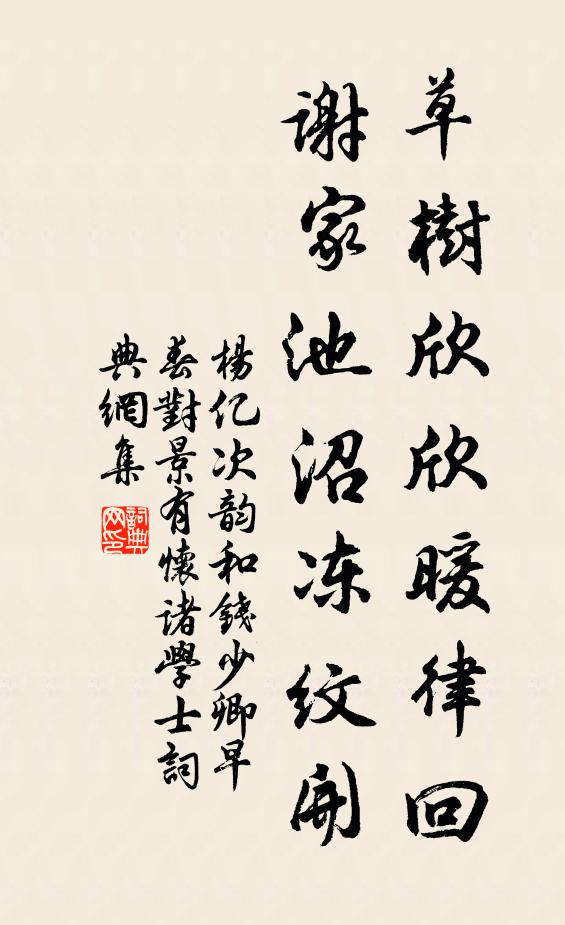 草樹欣欣暖律回
謝家池沼冻紋開
楊亿次韵和錢少卿早
春對景有懷諸學士詞
典網集
詞典网印